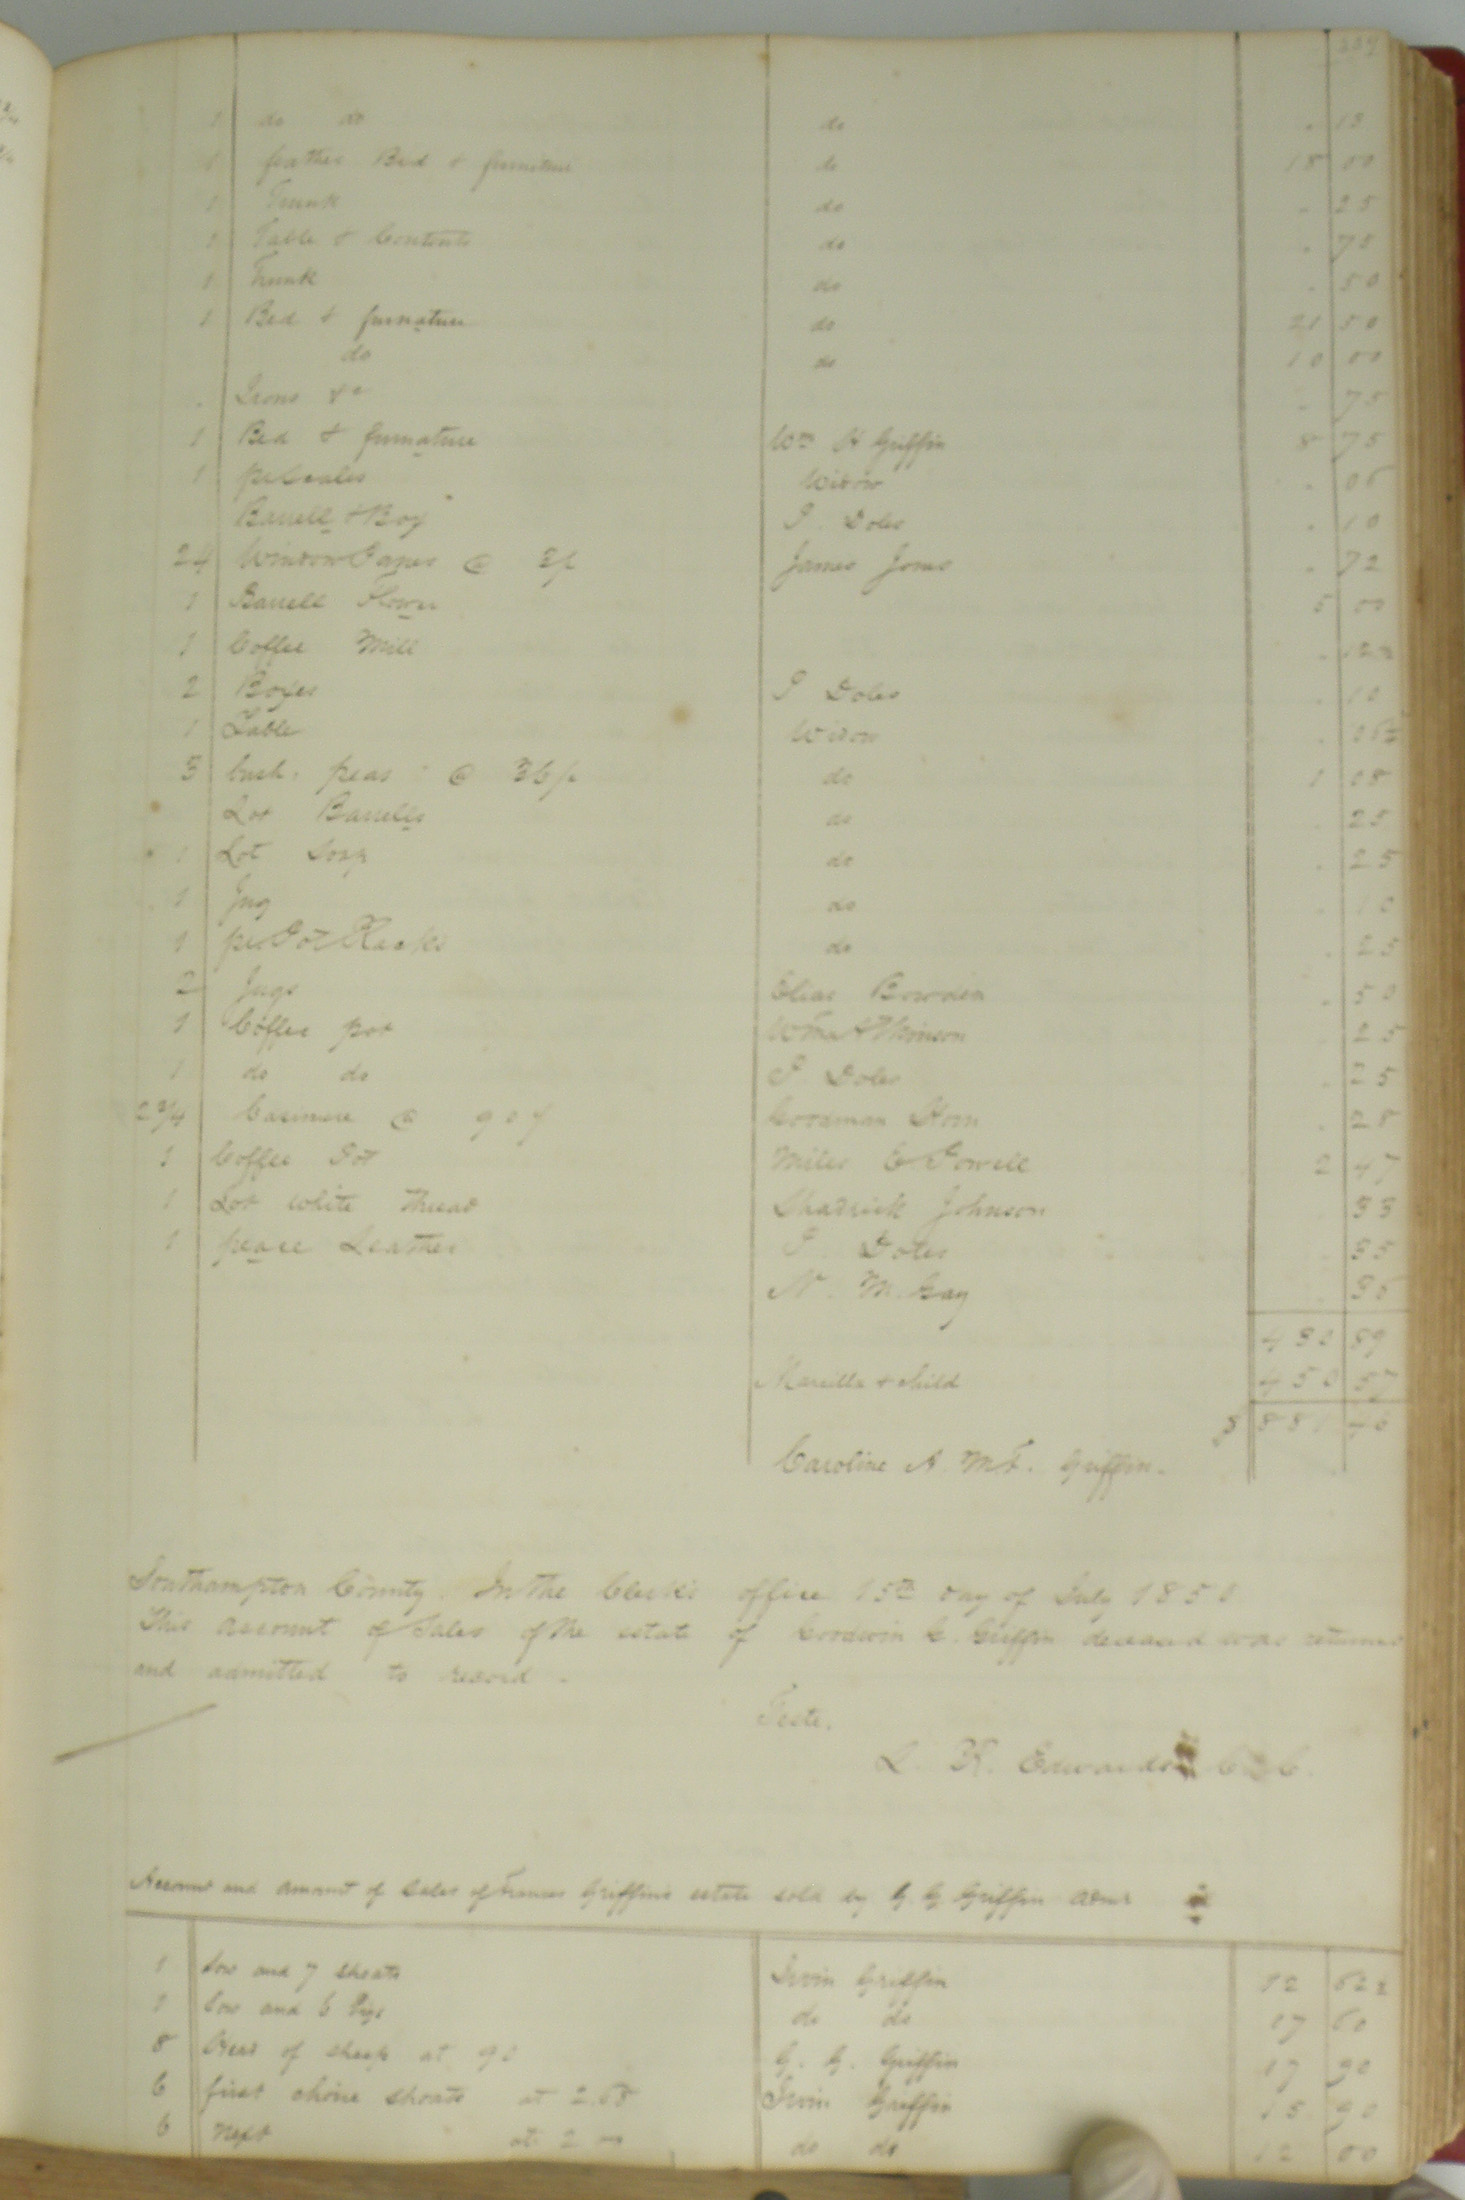 1 do do do . 13
1 feather Bed & furniture do 18 00
1 Trunk do . 25
1 Table & Contents do . 75
1 Trunk do . 50
1 Bed & furnature do 21 50
do do 10 00
. Irons &c . 75
1 Bed & furnature Wm H Griffin 8 75
1 Widow . 06
Barrell & Box Doles . 10
24 Window Panes @ 3/ James Jones . 72
1 Barrell Flower 5 00
1 Coffee Mill . 12½
2 Boxes Doles . 10
1 Table Widow . 06¼
3 bush. peas @ 36/ do 1 08
Lot Barrells do . 25
1 Lot Soap do . 25
1 Jug do . 10
1 pr Pot Racks do . 25
2 Jugs Elias Bowden . 50
1 Coffee pot Wm Atkinson . 25
1 do do Doles . 25
2¾ Casimere @ 90/ Goodman . 28
1 Coffee Pot Miles C Powell 2 47
1 Lot white thread Shadrick Johnson 33
1 peace Leather Doles . 35
N. M. Gay . 35
430 89
Marilla & child 450 57
$ 881 46
Caroline A. M. F. Griffin.
Southampton County. In the Clerk's office 15th day of July 1850
This account of Sales of the estate of Goodwin G. Griffin deceased was returned
and admitted to record.
Teste.
L. R. Edwards C C.
Account and amount of Sales of Frances Griffins estate sold by G. G. Griffin Admr
1 Sow and 7 shoats Irvin Griffin 12 62½
1 Sow and 6 Pigs do do 17 60
8 Head of sheep at 90 G. G. Griffin 17 90
6 first choice shoats at 2.65 Irvin Griffin 15 90
6 Next at 2 00 do do 12 00